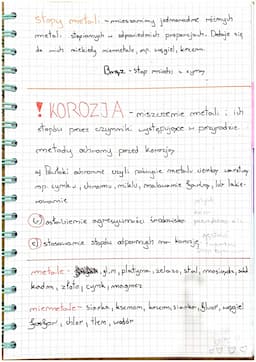 stopy metali - mieszaniny jednorodne różnych
metali stopionych w odpowiednich proporcjach. Dodaje się
do nich niekiedy niemetale, np. węgiel, krzem.
Brąz - stop miedzi z cyną
! KOROZJA - niszczenie metali i ich
stopów przez czynniki występujące w przyrodzie
metody ochrony przed korozją
a) Powłoki ochronne czyli pokrycie metalu warstwą
np. cynku, chromu, niklu, malowanie farbą, lub lakie-
rowanie
b) osłabienie agresywności środowiska
c) stosowanie stopów odpornych na korozję
metale - glin, platyna, żelazo, stal, mosiądz,
kadm, złoto, cynk, magnez
niemetale - siarka, krzem, fluor, węgiel
chlor, tlen, wodór